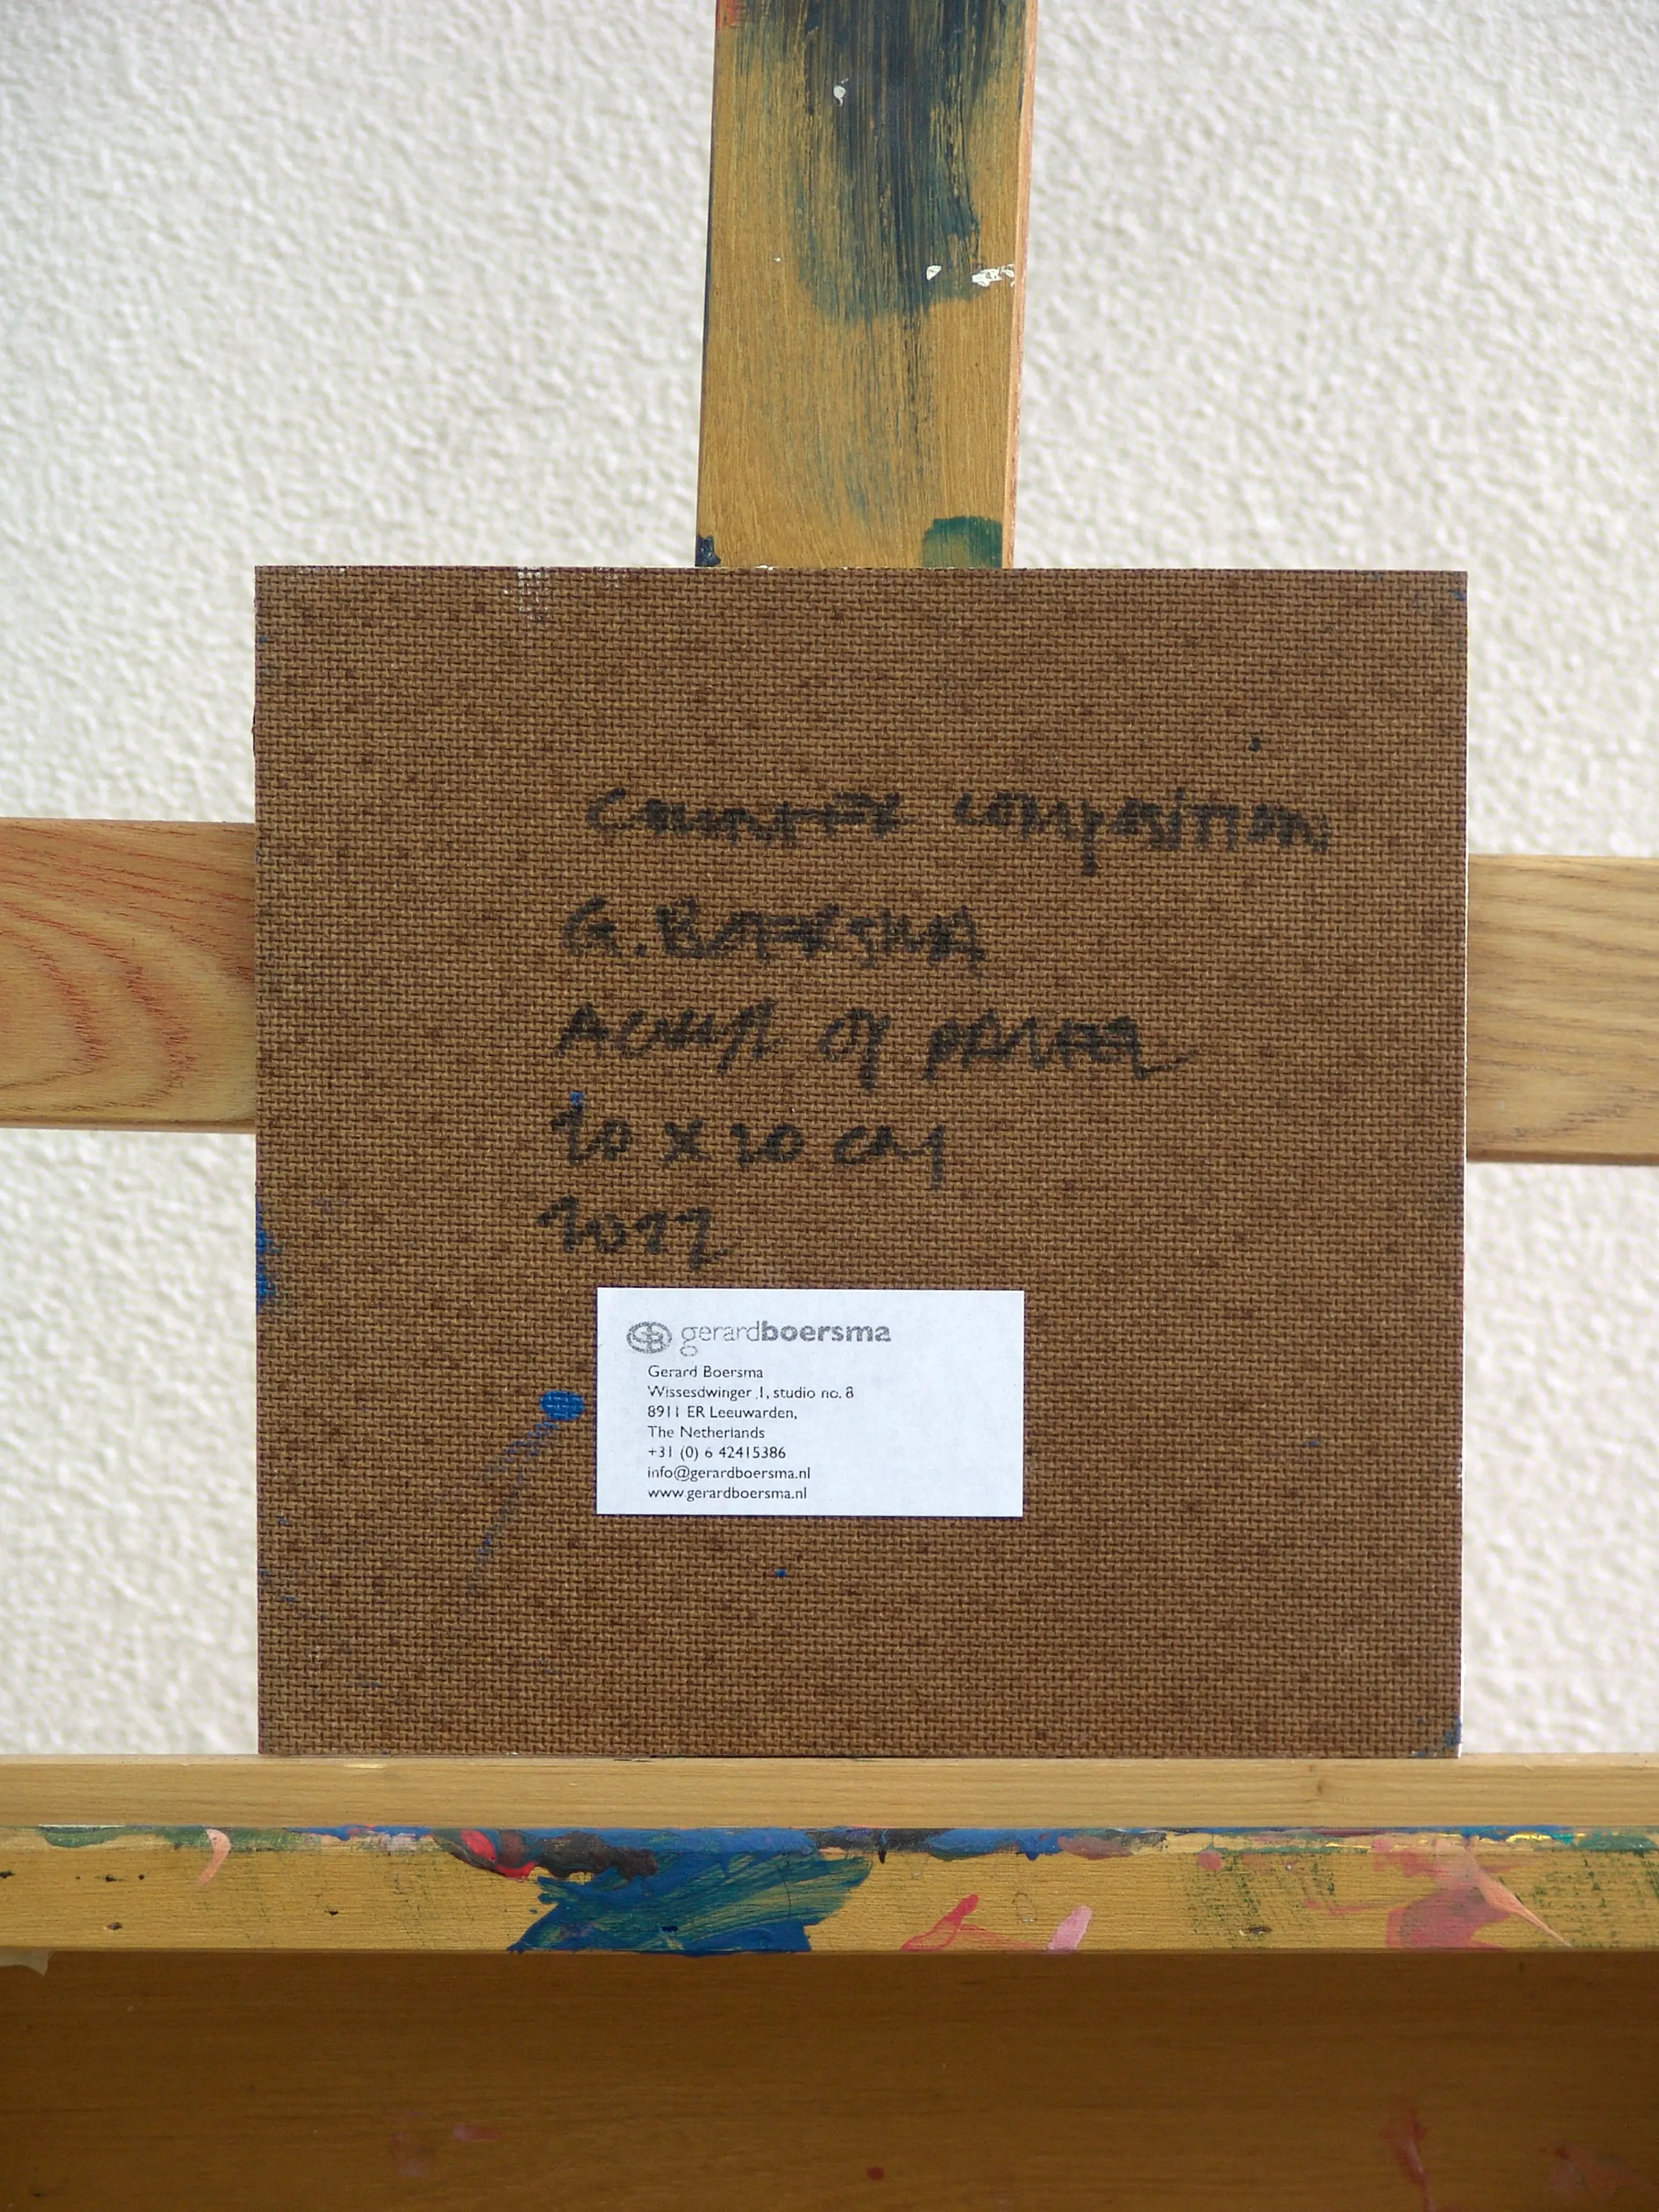 COUNTER COMPOSITION
G. BOERSMA
ACRYL OP PANEEL
20 x 20 CM
2022
GB gerardboersma
Gerard Boersma
Wissesdwinger 1, studio no. 8
8911 ER Leeuwarden,
The Netherlands
+31 (0) 6 42415386
info@gerardboersma.nl
www.gerardboersma.nl